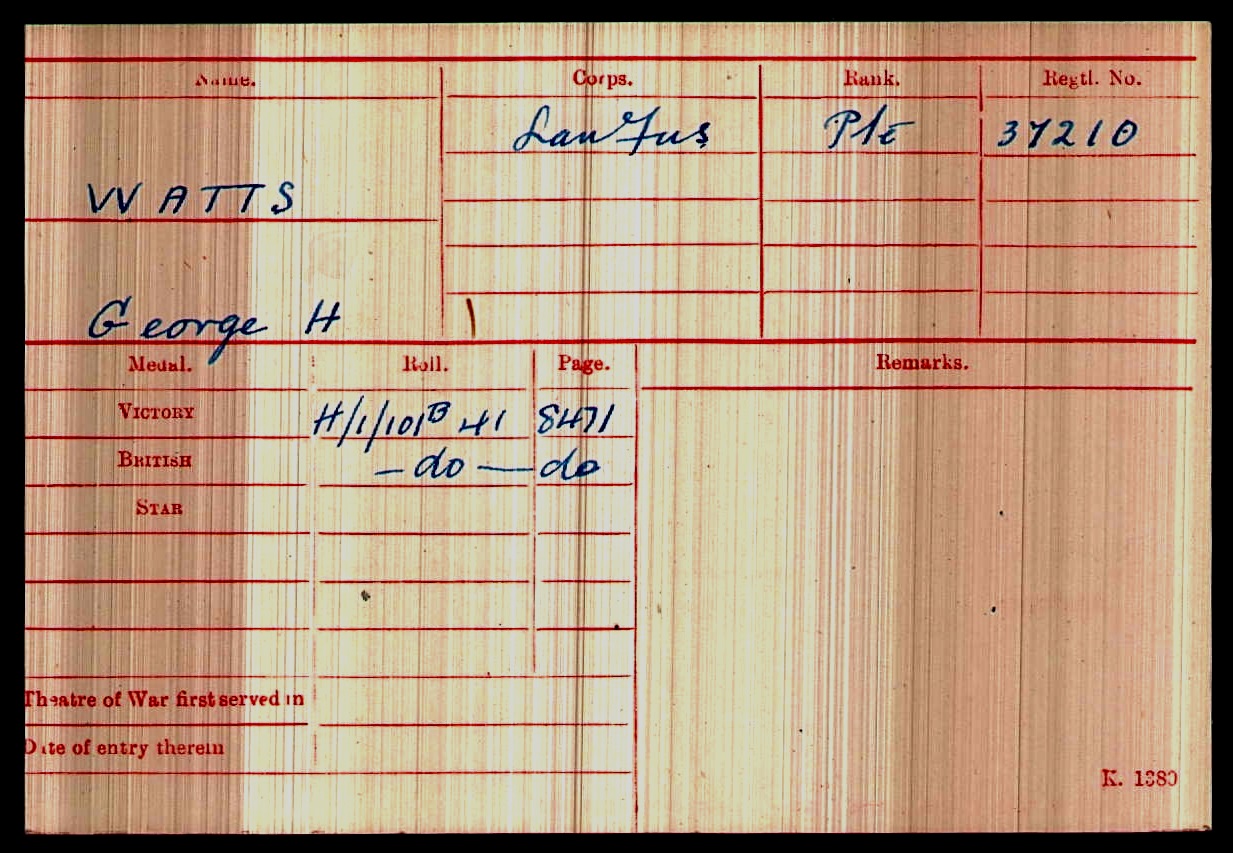 Name. Corps. Rank. Regtl. No.
Lan Fus Pte 37210
WATTS
George H
Medal. Roll. Page. Remarks.
VICTORY H/1/101B 41 8471
BRITISH — do — do
STAR
Theatre of War first served in
Date of entry therein
K. 1380